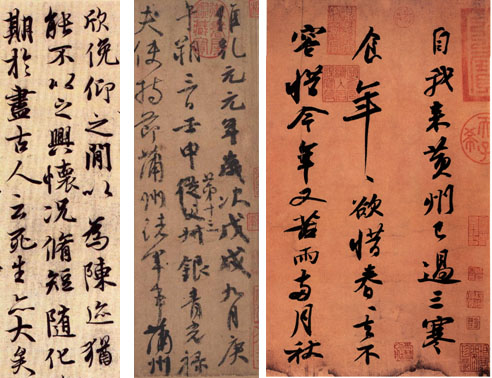 欣俛仰之閒以為陳迹猶
能不以之興懷況脩短隨化
期於盡古人云死生亦大矣
維乾元元年歲次戊戌九月庚
午朔三日壬申從父銀青光祿
第十三
夫使持節蒲州諸軍事蒲州
自我来黃州已過三寒
食年〻欲惜春〻去不
容惜今年又苦雨兩月秋